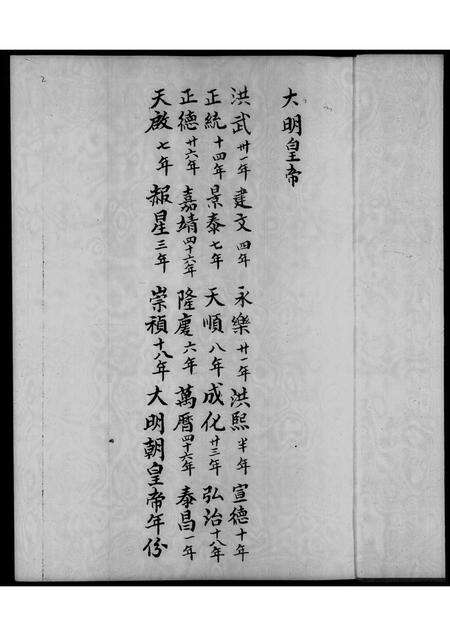 大明皇帝
洪武 卅一年 建文 四年 永樂 廿一年 洪熙 半年 宣德 十年
正統 十四年 景泰 七年 天順 八年 成化 廿三年 弘治 十八年
正德 廿六年 嘉靖 四十六年 隆慶 六年 萬曆 四十六年 泰昌 一年
天啟 七年 星 三年 崇禎 十八年 大明朝皇帝年份
2